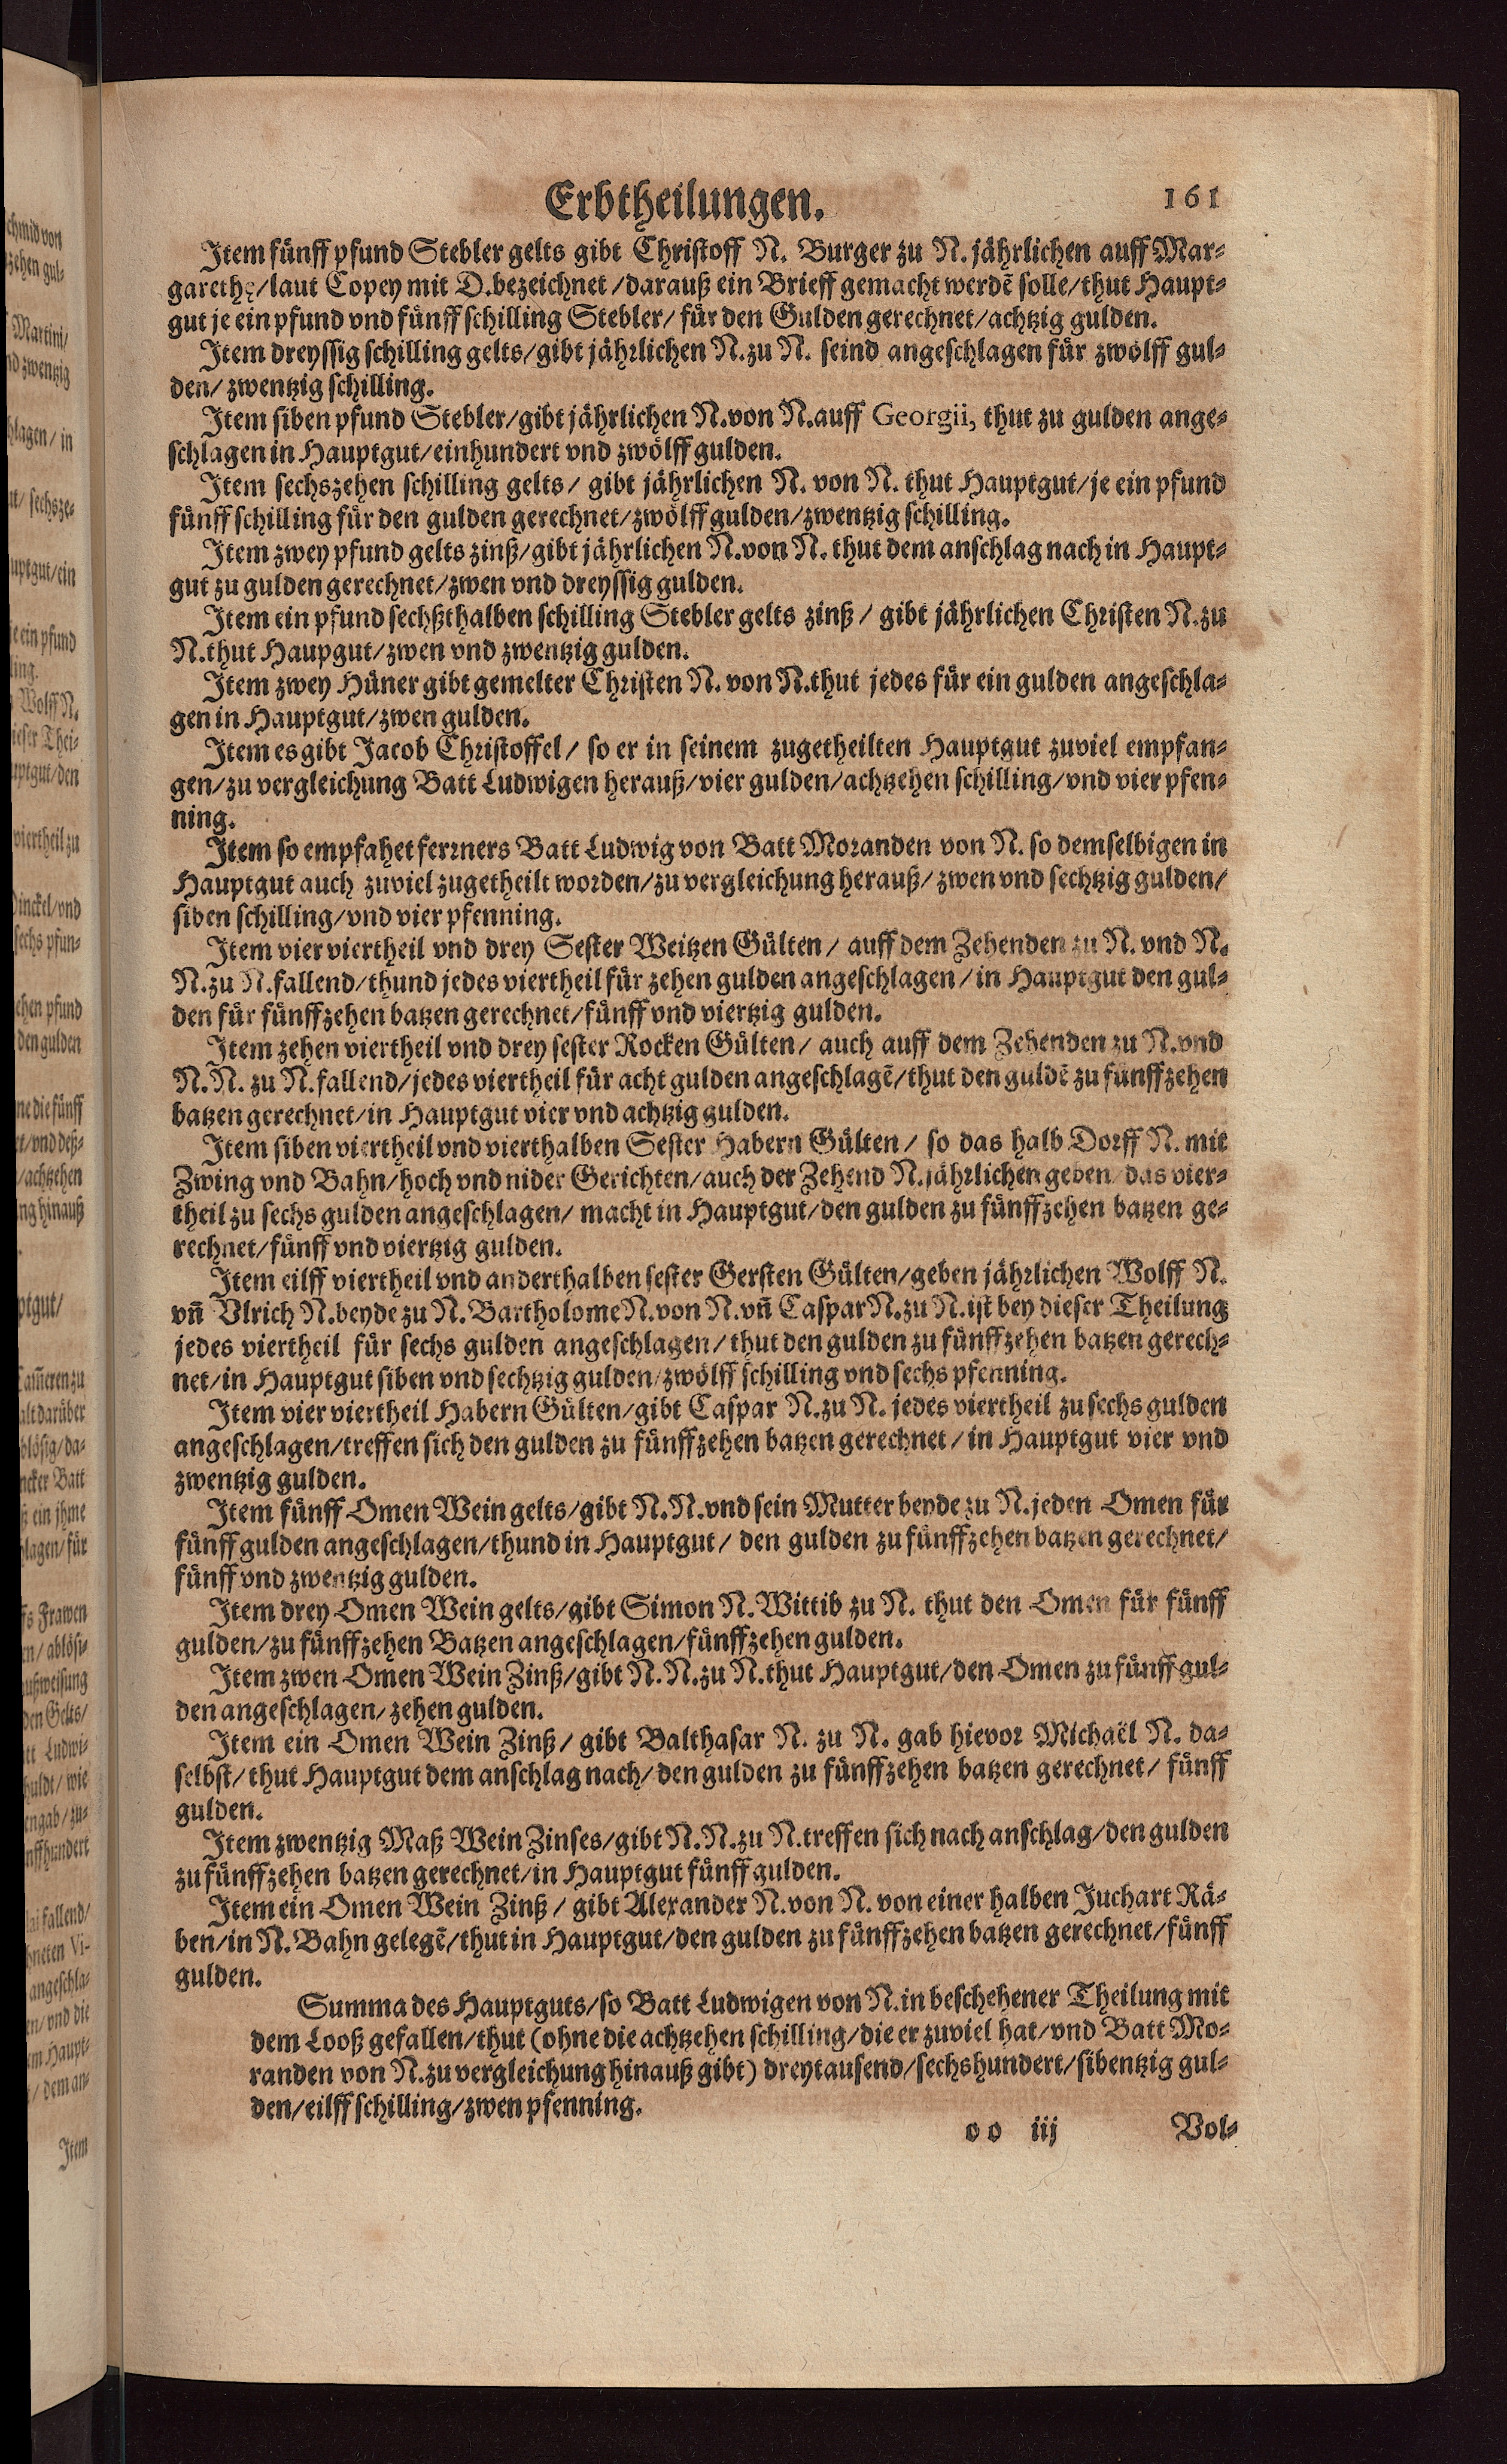 Erbtheilungen. 161
Item fünff pfund Stebler gelts gibt Christoff N. Burger zu N. jährlichen auff Mar⸗
garethę/laut Copey mit D. bezeichnet/darauß ein Brieff gemacht werdẽ solle/thut Haupt⸗
gut je ein pfund vnd fünff schilling Stebler/ für den Gulden gerechnet/achtzig gulden.
Item dreyssig schilling gelts/gibt jährlichen N. zu N. seind angeschlagen für zwölff gul⸗
den/ zwentzig schilling.
Item siben pfund Stebler/gibt jährlichen N. von N. auff Georgii, thut zu gulden ange⸗
schlagen in Hauptgut/einhundert vnd zwölff gulden.
Item sechszehen schilling gelts/ gibt jährlichen N. von N. thut Hauptgut/je ein pfund
fünff schilling für den gulden gerechnet/zwölff gulden/zwentzig schilling.
Item zwey pfund gelts zinß/gibt jährlichen N. von N. thut dem anschlag nach in Haupt⸗
gut zu gulden gerechnet/zwen vnd dreyssig gulden.
Item ein pfund sechßthalben schilling Stebler gelts zinß/ gibt jährlichen Christen N. zu
N. thut Haupgut/zwen vnd zwentzig gulden.
Item zwey Hüner gibt gemelter Christen N. von N. thut jedes für ein gulden angeschla⸗
gen in Hauptgut/zwen gulden.
Item es gibt Jacob Christoffel/ so er in seinem zugetheilten Hauptgut zuviel empfan⸗
gen/zu vergleichung Batt Ludwigen herauß/vier gulden/achtzehen schilling/vnd vier pfen⸗
ning.
Item so empfahet ferrners Batt Ludwig von Batt Moranden von N. so demselbigen in
Hauptgut auch zuviel zugetheilt worden/zu vergleichung herauß/ zwen vnd sechtzig gulden/
siben schilling/vnd vier pfenning.
Item vier viertheil vnd drey Sester Weitzen Gülten/ auff dem Zehenden zu N. vnd N.
N. zu N. fallend/thund jedes viertheil für zehen gulden angeschlagen/in Hauptgut den gul⸗
den für fünffzehen batzen gerechnet/fünff vnd viertzig gulden.
Item zehen viertheil vnd drey sester Rocken Gülten/ auch auff dem Zehenden zu N. vnd
N. N. zu N. fallend/jedes viertheil für acht gulden angeschlagẽ/thut den guldẽ zu fünffzehen
batzen gerechnet/in Hauptgut vier vnd achtzig gulden.
Item siben viertheil vnd vierthalben Sester Habern Gülten/ so das halb Dorff N. mit
Zwing vnd Bahn/hoch vnd nider Gerichten/auch der Zehend N. jährlichen geben/das vier⸗
theil zu sechs gulden angeschlagen/ macht in Hauptgut/den gulden zu fünffzehen batzen ge⸗
rechnet/fünff vnd viertzig gulden.
Item eilff viertheil vnd anderthalben sester Gersten Gülten/geben jährlichen Wolff N.
vñ Vlrich N. beyde zu N. Bartholome N. von N. vñ Caspar N. zu N. ist bey dieser Theilung
jedes viertheil für sechs gulden angeschlagen/thut den gulden zu fünffzehen batzen gerech⸗
net/in Hauptgut siben vnd sechtzig gulden/zwölff schilling vnd sechs pfenning.
Item vier viertheil Habern Gülten/gibt Caspar N. zu N. jedes viertheil zu sechs gulden
angeschlagen/treffen sich den gulden zu fünffzehen batzen gerechnet/in Hauptgut vier vnd
zwentzig gulden.
Item fünff Omen Wein gelts/gibt N. N. vnd sein Mutter beyde zu N. jeden Omen für
fünff gulden angeschlagen/thund in Hauptgut/ den gulden zu fünffzehen batzen gerechnet/
fünff vnd zwentzig gulden.
Item drey Omen Wein gelts/gibt Simon N. Wittib zu N. thut den Omen für fünff
gulden/zu fünffzehen Batzen angeschlagen/fünffzehen gulden.
Item zwen Omen Wein Zinß/gibt N. N. zu N. thut Hauptgut/den Omen zu fünff gul⸗
den angeschlagen/zehen gulden.
Item ein Omen Wein Zinß/ gibt Balthasar N. zu N. gab hievor Michaël N. da⸗
selbst/thut Hauptgut dem anschlag nach/den gulden zu fünffzehen batzen gerechnet/ fünff
gulden.
Item zwentzig Maß Wein Zinses/gibt N. N. zu N. treffen sich nach anschlag/den gulden
zu fünffzehen batzen gerechnet/in Hauptgut fünff gulden.
Item ein Omen Wein Zinß/ gibt Alexander N. von N. von einer halben Juchart Rä⸗
ben/in N. Bahn gelegẽ/thut in Hauptgut/den gulden zu fünffzehen batzen gerechnet/fünff
gulden.
Summa des Hauptguts/so Batt Ludwigen von N. in beschehener Theilung mit
dem Looß gefallen/thut (ohne die achtzehen schilling/die er zuviel hat/vnd Batt Mo⸗
randen von N. zu vergleichung hinauß gibt) dreytausend/sechshundert/sibentzig gul⸗
den/eilff schilling/zwen pfenning.
oo iij Vol⸗